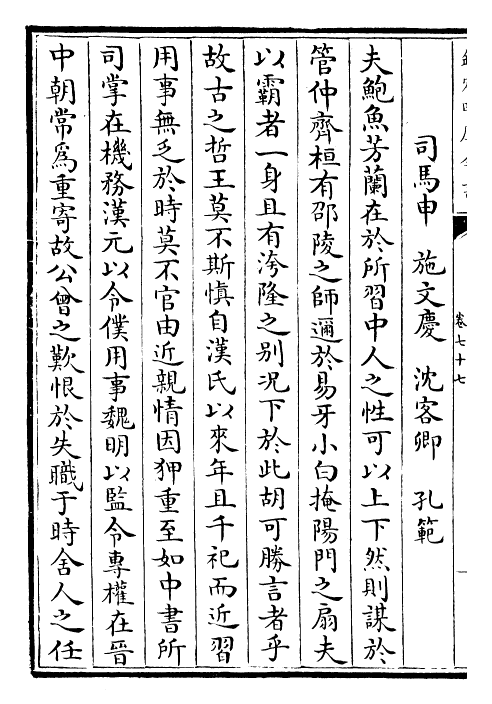 卷七十七
司馬申　施文慶　沈客卿　孔範
夫鮑魚芳蘭在於所習中人之性可以上下然則謀於
管仲齊桓有邵陵之師邇於易牙小白掩陽門之扇夫
以霸者一身且有洿隆之別况下於此胡可勝言者乎
故古之哲王莫不斯慎自漢氏以來年且千祀而近習
用事無乏於時莫不官由近親情因狎重至如中書所
司掌在機務漢元以令僕用事魏明以監令專權在晉
中朝常爲重寄故公曾之歎恨於失職于時舍人之任